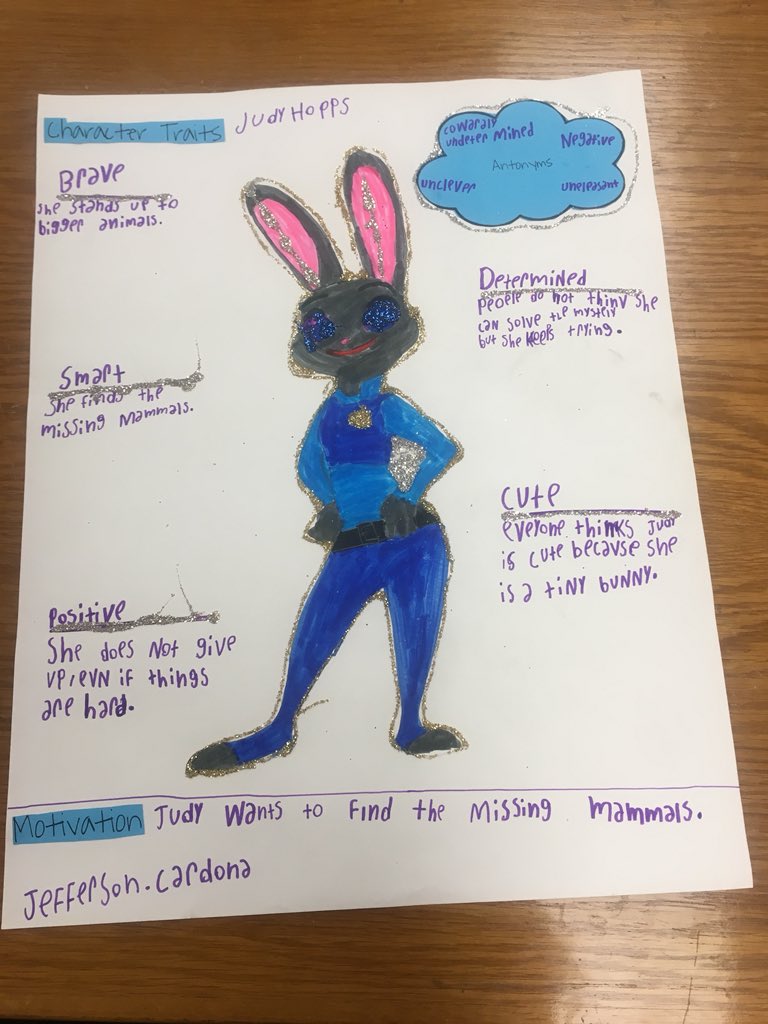 Character Traits Judy Hopps
cowaraly
undeter mined
Negative
Antonyms
unclever
unpleasant
Brave
she stands up to
bigger animals.
Determined
people do not thinv she
can solve the mystery
but she keeps trying.
Smart
She finds the
missing mammals.
Cute
everyone thinks Judy
is cute because she
is a tiny bunny.
Positive
She does not give
up, evn if things
are hard.
Motivation Judy Wants to Find the Missing mammals.
Jefferson.Cardona